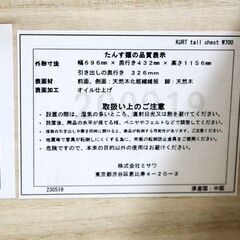 KURT tall chest W700
たんす類の品質表示
外形寸法 幅696mm×奥行き432mm×高さ1156mm
引き出しの奥行き 326mm
表面材 前面、側面:天然木化粧繊維板 脚:天然木
表面加工 オイル仕上げ
取扱い上のご注意
・設置の際は、湿気の多いところ、直射日光又は熱を避けてください。
・設置後、商品の水平が保てる様、ベニヤやフェルトなどで調整してください。
・危険ですので、本来の目的以外にはご使用にならないでください。
株式会社ミサワ
東京都渋谷区恵比寿4-20-3
230519
原産国:中国
230519